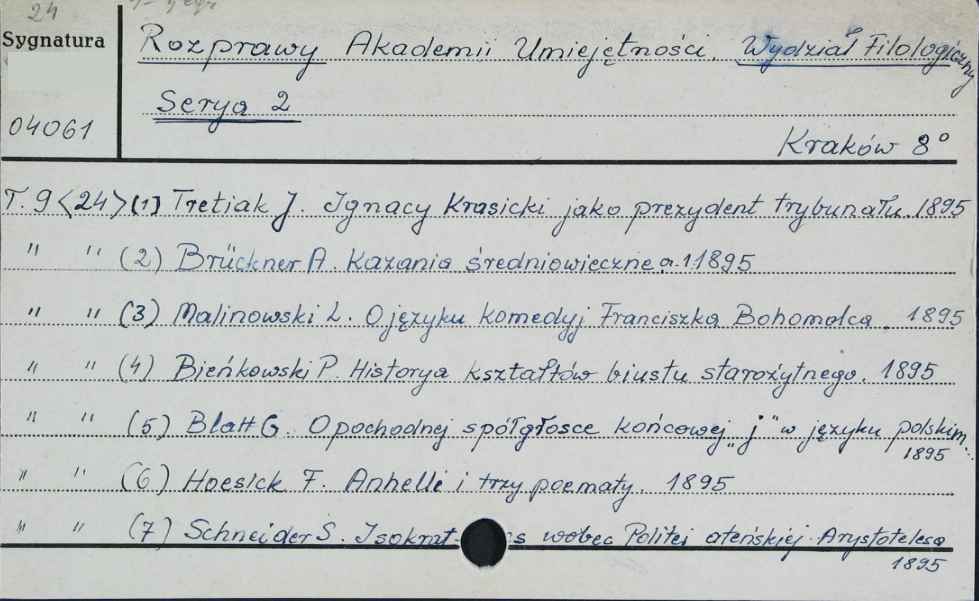 24
Sygnatura
Rozprawy Akademii Umiejętności. Wydział Filologiczny
Serya 2
04061
Kraków 8°
T. 9 <24> (1) Tretiak J. Ignacy Krasicki jako prezydent trybunału. 1895
" " (2) Brückner A. Kazania średniowieczne 1895
" " (3) Malinowski L. O języku komedyj Franciszka Bohomolca. 1895
" " (4) Bieńkowski P. Historya kształtów biustu starożytnego. 1895
" " (5) Blatt G. O pochodnej spółgłosce końcowej „j" w języku polskim.
1895
" " (6) Hoesick F. Anhelli i trzy poematy. 1895
" " (7) Schneider S. wobec Politei ateńskiej Arystotelesa
1895